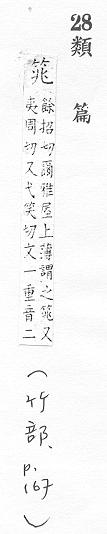 28類 篇
筄
餘招切爾雅屋上薄謂之筄又
夷周切又弋笑切文一重音二
(竹部、p.167)